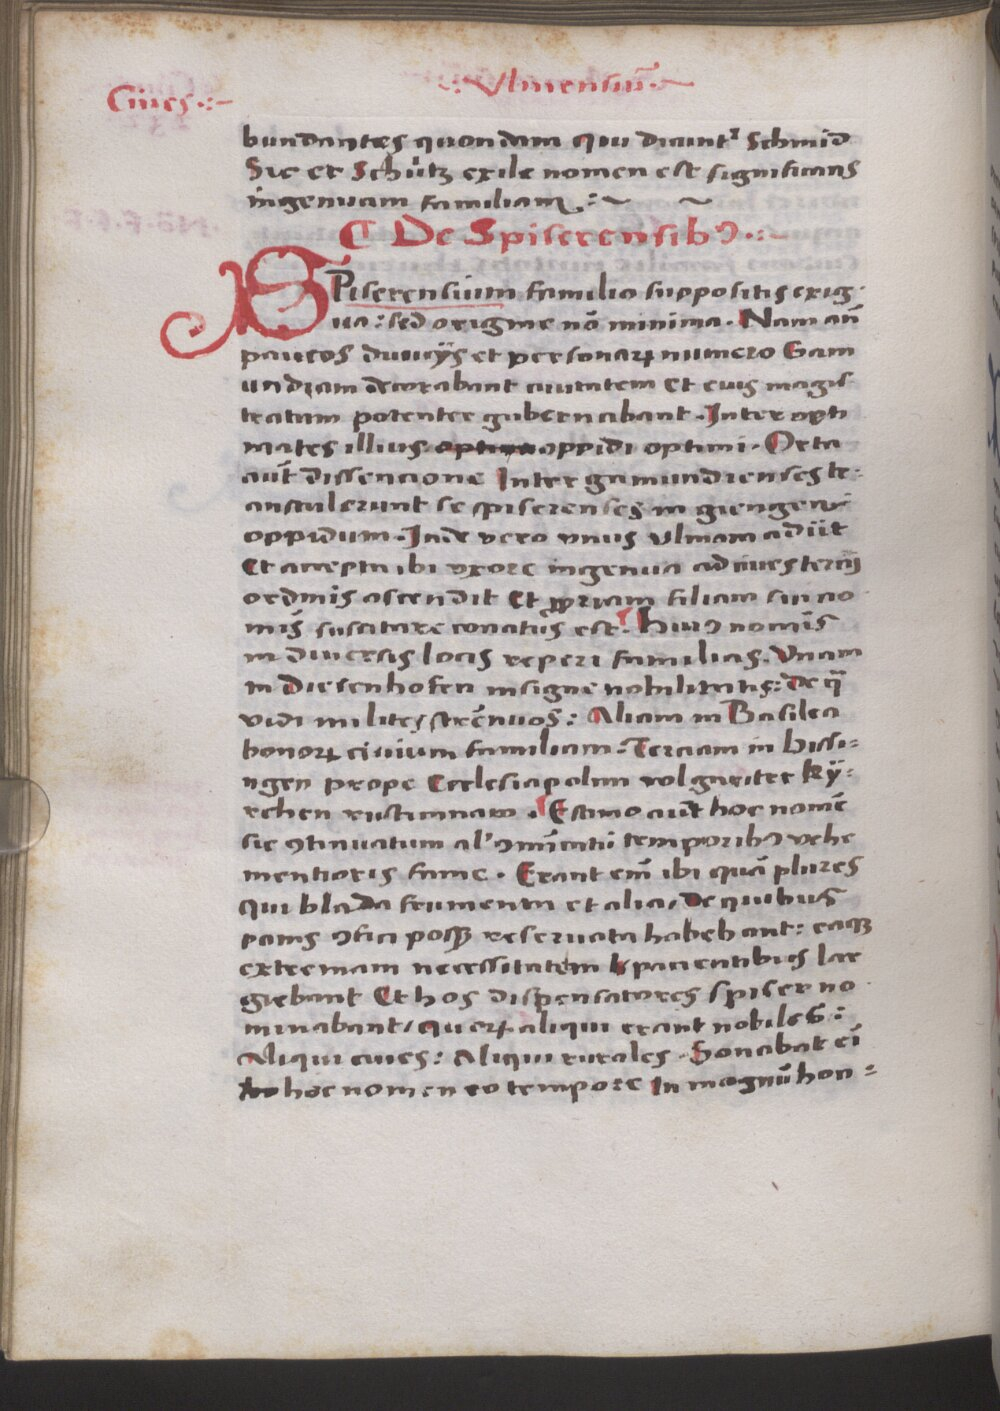 Ulmensiū
Ciues
bundantes quondam qui dicunt᷑ Schmid
Sic et Schütz exile nomen est significans
ingenuam familiam
De Spiserensibꝰ
SPiserensium familia suppositis exig
ua: sed origine nō minima. Nam an̄
paucos duucÿs et personaꝝ numero Gam
undiam decorabant ciuitatem et eius magis
tratum potenter gubernabant. Inter opti
mates illius oppidi optimi. Orta
aut̄ dissencione Inter gamundienses te
anstulerunt se spiserenses in giengen
oppidum. Inde vero vnus Ulmam adiit
Et accepta ibi vxore ingenua ad ciues tercij
ordinis ascendit Et ꝓpriam filiam sui no
mīs suscitare conatus est. Huiꝰ nomīs
in diuersis locis reperi familias. Vnam
in Diesenhofen insigne nobilitatis: de q̄
vidi milites strēnuos: Aliam in Basilea
bonoꝝ ciuium familiam. Terciam in hissi:
ngen prope Ecclesiapolim volgariter kÿ:
rchen rusticanam. Estimo aut̄ hoc nomē
sic ꝯtinuatum al' ꝯmītatū temporibꝰ vehe
mentioris fame. Erant em̄ ibi quā plures
qui blada frumenta et alia, de quibus
panis ꝯfici posꝫ reseruata habebant: eaqꝫ
extremam necessitatem pacientibus lar
giebant Et hos dispensatores spiser no
minabant, queꝝ aliqui erant nobiles:
Aliqui ciues: Aliqui rurales. Sonabat ei
hoc nomen eo tempore In magnū hon=